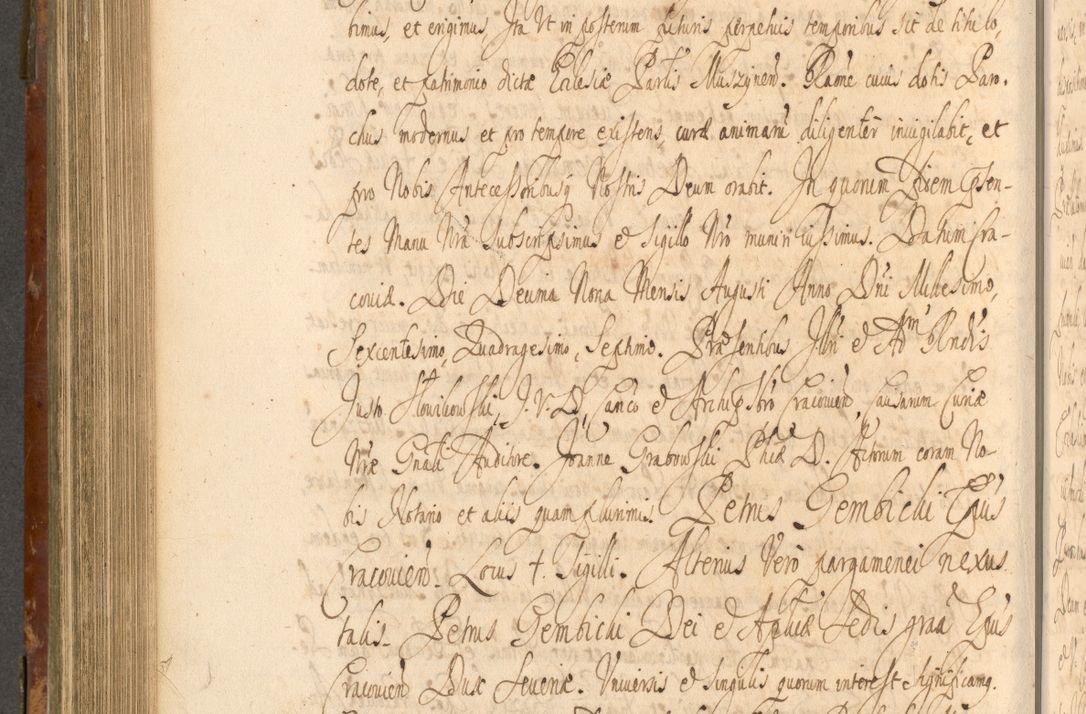 bimus, et erigimus, Ita Vt in posterum futuris perpetuis temporibus sit de titulo,
dote, et patrimonio dictæ Ecclesiæ Partis Muszynen. Raõne cuius dotis Paro-
chus modernus et pro tempore existens, curæ animarũ diligenter invigilabit, et
pro Nobis Antecessoribusq Nostris Deum orabit. In quorum Fidem Præsen-
tes Manu Nrã Subscripsimus & Sigillo Nro muniri iussimus. Datum Cra-
coviæ. Die Decima Nona Mensis Augusti Anno Dni Millesimo,
Sexcentesimo, Quadragesimo, Septimo. Præsentibus Illri & Adm Rndis
Justo Słowikowski, J. V. D. Canco & Archipbro Cracovien, Causarum Curiæ
Nræ Gnãli Auditore. Joanne Grabowski Phiæ D. Actorum coram No-
bis Notario et aliis quam plurimis. Petrus Gembicki Eppus
Cracovien. Locus †. Sigilli. Alterius Vero pargamenei nexus
talis. Petrus Gembicki Dei & Apliæ Sedis graã Eppus
Cracovien Dux Severiæ. Universis & singulis quorum interest significamq.